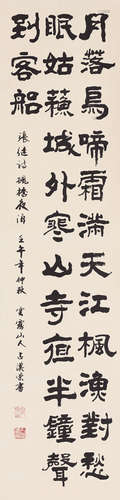 月落烏啼霜滿天江楓漁對愁
眠姑蘇城外寒山寺夜半鐘聲
到客船
張繼詩楓橋夜泊 壬午年仲秋
山人 書